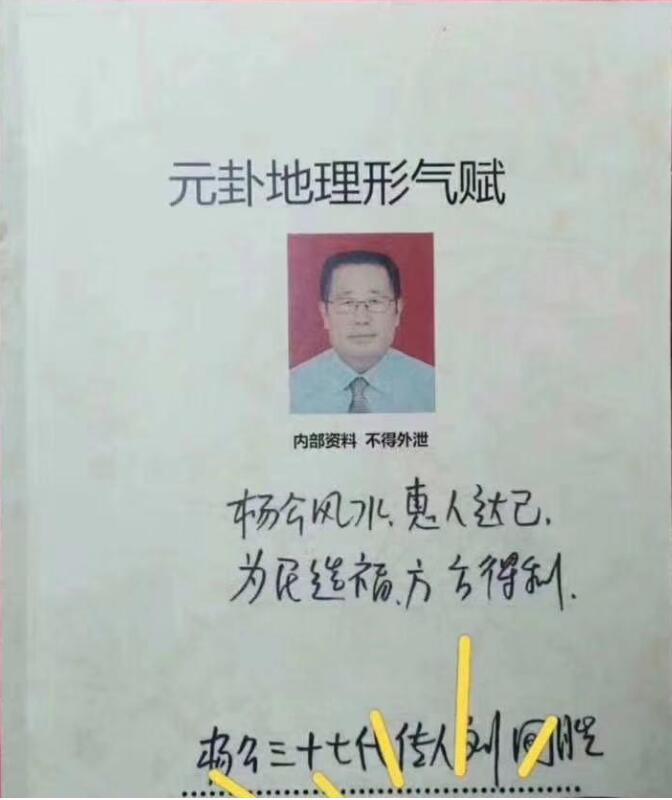 元卦地理形气赋
内部资料 不得外泄
杨公风水、惠人达己,
为民造福、方合得利.
杨公三十七代传人刘国胜